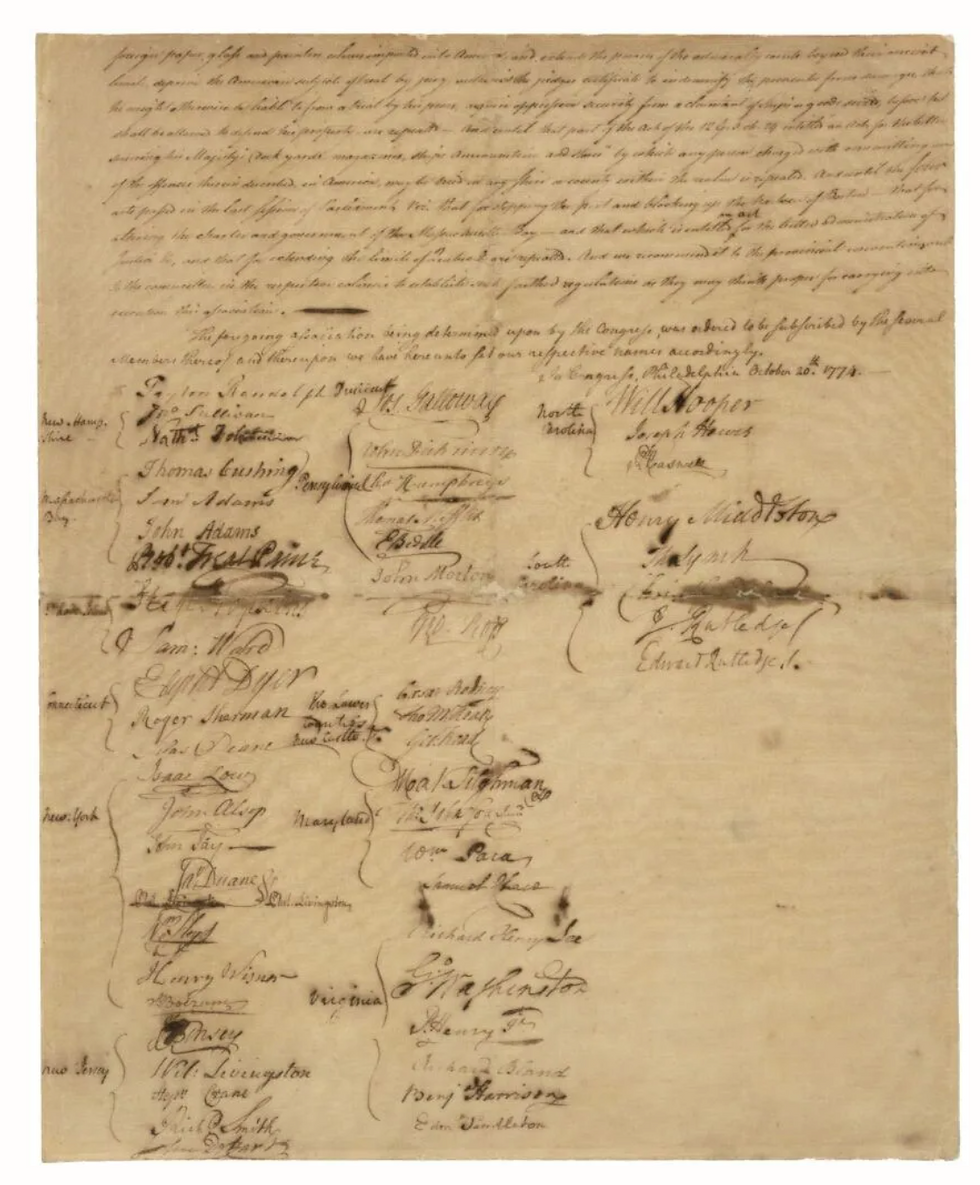 foreign paper, glass and painters colours imported into America, and extend the powers of the admiralty courts beyond their ancient
limits, deprive the American subject of trial by jury, authorize the judges certificate to indemnify the prosecutor from damages, that
he might otherwise be liable to from a trial by his peers, require oppressive security from a claimant of ships or goods seized, before he
shall be allowed to defend his property, are repealed — And until that part of the Act of the 12 G. 3. ch. 24 entitled an Act for the better
securing his Majesty's dock yards magazines, ships Ammunition and stores" by which any person charged with committing any
of the offences therein described, in America, may be tried in any shire or county within the realm is repealed. And until the four
acts passed in the last session of Parliament, viz. that for stopping the port and blocking up the harbour of Boston — that for
altering the charter and government of the Massachusetts Bay — and that which is entitled an act for the better administration of
Justice, and that for extending the limits of Quebec are repealed. And we recommend it to the provincial conventions and
to the committees in the respective colonies to establish such farther regulations as they may think proper for carrying into
execution this association.
The foregoing association being determined upon by the Congress, was ordered to be subscribed by the several
Members thereof and thereupon we have hereunto set our respective names accordingly.
In Congress, Philadelphia October 20th. 1774.
Peyton Randolph President
New Hampshire
Jno Sullivan
Nathl. Folsom
Massachusetts Bay
Thomas Cushing
Sam Adams
John Adams
Robt. Treat Paine
Sam: Ward
Connecticut
Elipht Dyer
Roger Sherman
Silas Deane
New-York
Isaac Low
John Alsop
John Jay
Jas. Duane
Phil. Livingston
Henry Wisner
S: Boerum
New Jersey
Wil: Livingston
Stepn. Crane
Richd. Smith
Pensylvania
Jos. Galloway
John Dickinson
Cha Humphreys
Thomas Mifflin
E Biddle
John Morton
Geo: Ross
The Lower Counties New Castle
Cæsar Rodney
Tho M:Kean
Geo: Read
Maryland
Mat. Tilghman
Ths Johnson Junr
Wm. Paca
Samuel Chase
Virginia
Richard Henry Lee
Go. Washington
P. Henry Jr.
Richard Bland
Benj Harrison
Edm Pendleton
North Carolina
Will Hooper
Joseph Hewes
Rd Caswell
South Carolina
Henry Middleton
Tho Lynch
J. Rutledge
Edward Rutledge